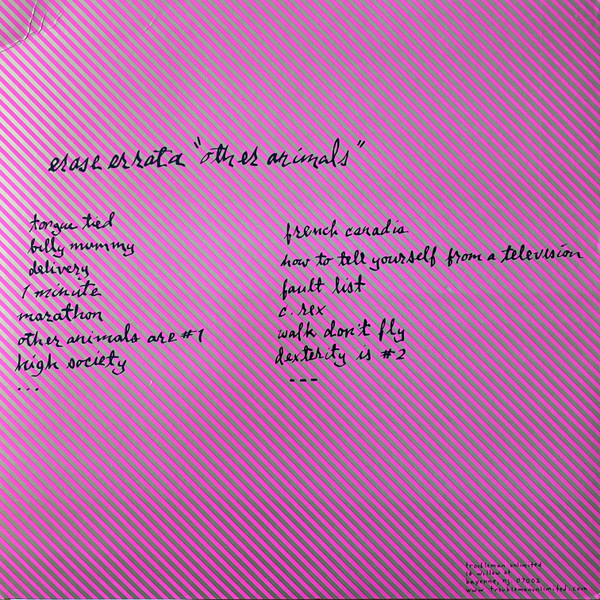 erase errata "other animals"
tongue tied
billy mummy
delivery
1 minute
marathon
other animals are #1
high society
...
french canadia
how to tell yourself from a television
fault list
c. rex
walk don't fly
dexterity is #2
---
troubleman unlimited
16 willow st
bayonne, nj 07002
www.troublemanunlimited.com